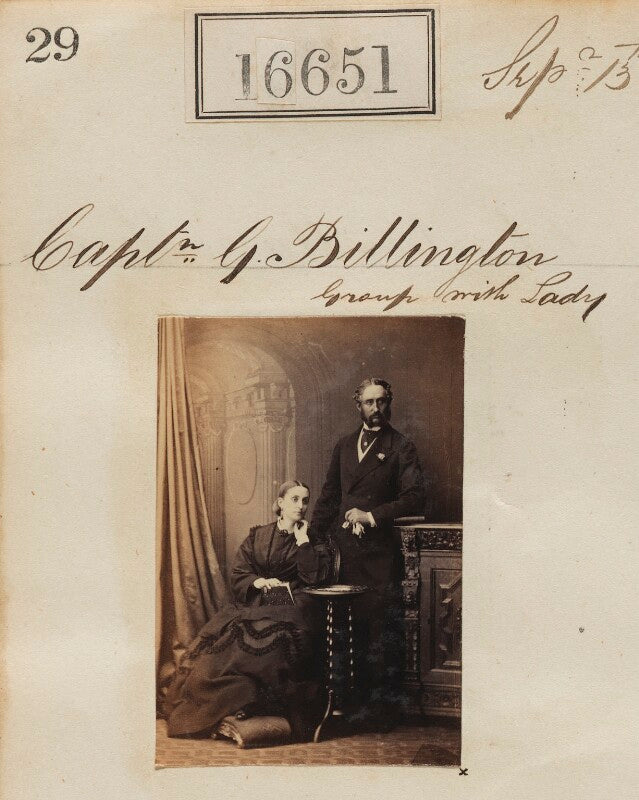 29
16651
Sepr 13
Captn G. Billington
Group with Lady
x